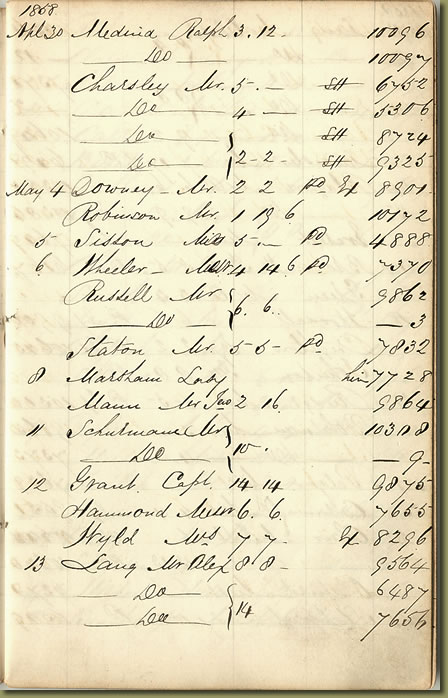 1868
Apl 30 Medina Ralph 3. 12. 10096
Do 10097
Charsley Mr. 5. - SH 6752
Do 4 - SH 5306
Do SH 8724
Do 2 - 2 - SH 9325
May 4 Downey - Mr. 2 2 pd 8901
Robinson Mr. 1 19 6 10172
5 Sisson Miss 5. - pd 4888
6 Wheeler - 4 14 6 pd 7370
Russell Mr 9862
Do 6. 6. - 3
Staton Mr. 5 5 - pd 7832
8 Marsham Lady 7728
Mann Mr Jno 2 16. 9864
11 Schurmann Mr 10308
Do 10 . - 9 -
12 Grant. Capt. 14 14 9875
Hammond 6. 6. 7655
Wyld Mrs 7 7 - 8296
13 Lang Mr Alex 8 8 - 9564
Do 6487
Do 14 7656